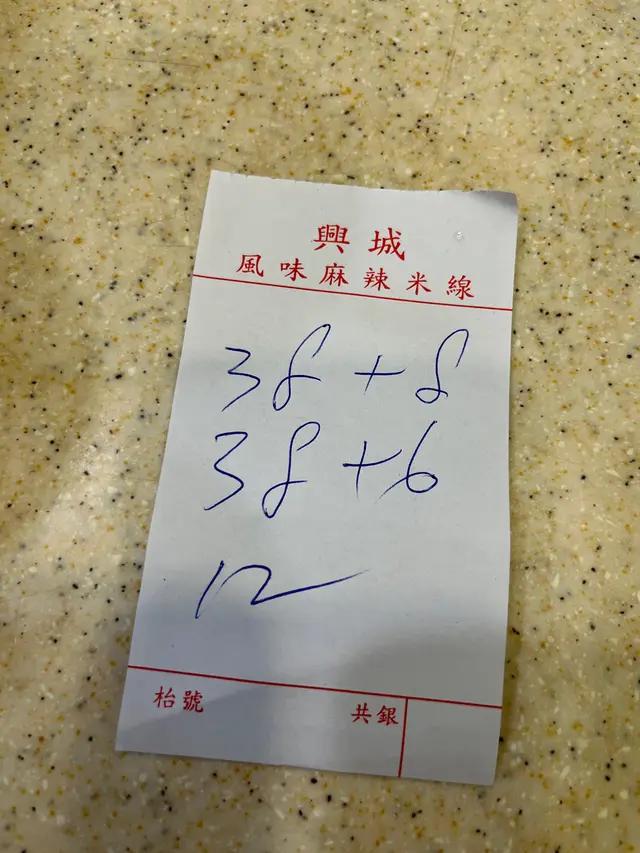 興城
風味麻辣米線
38+8
38+6
12
枱號 共銀